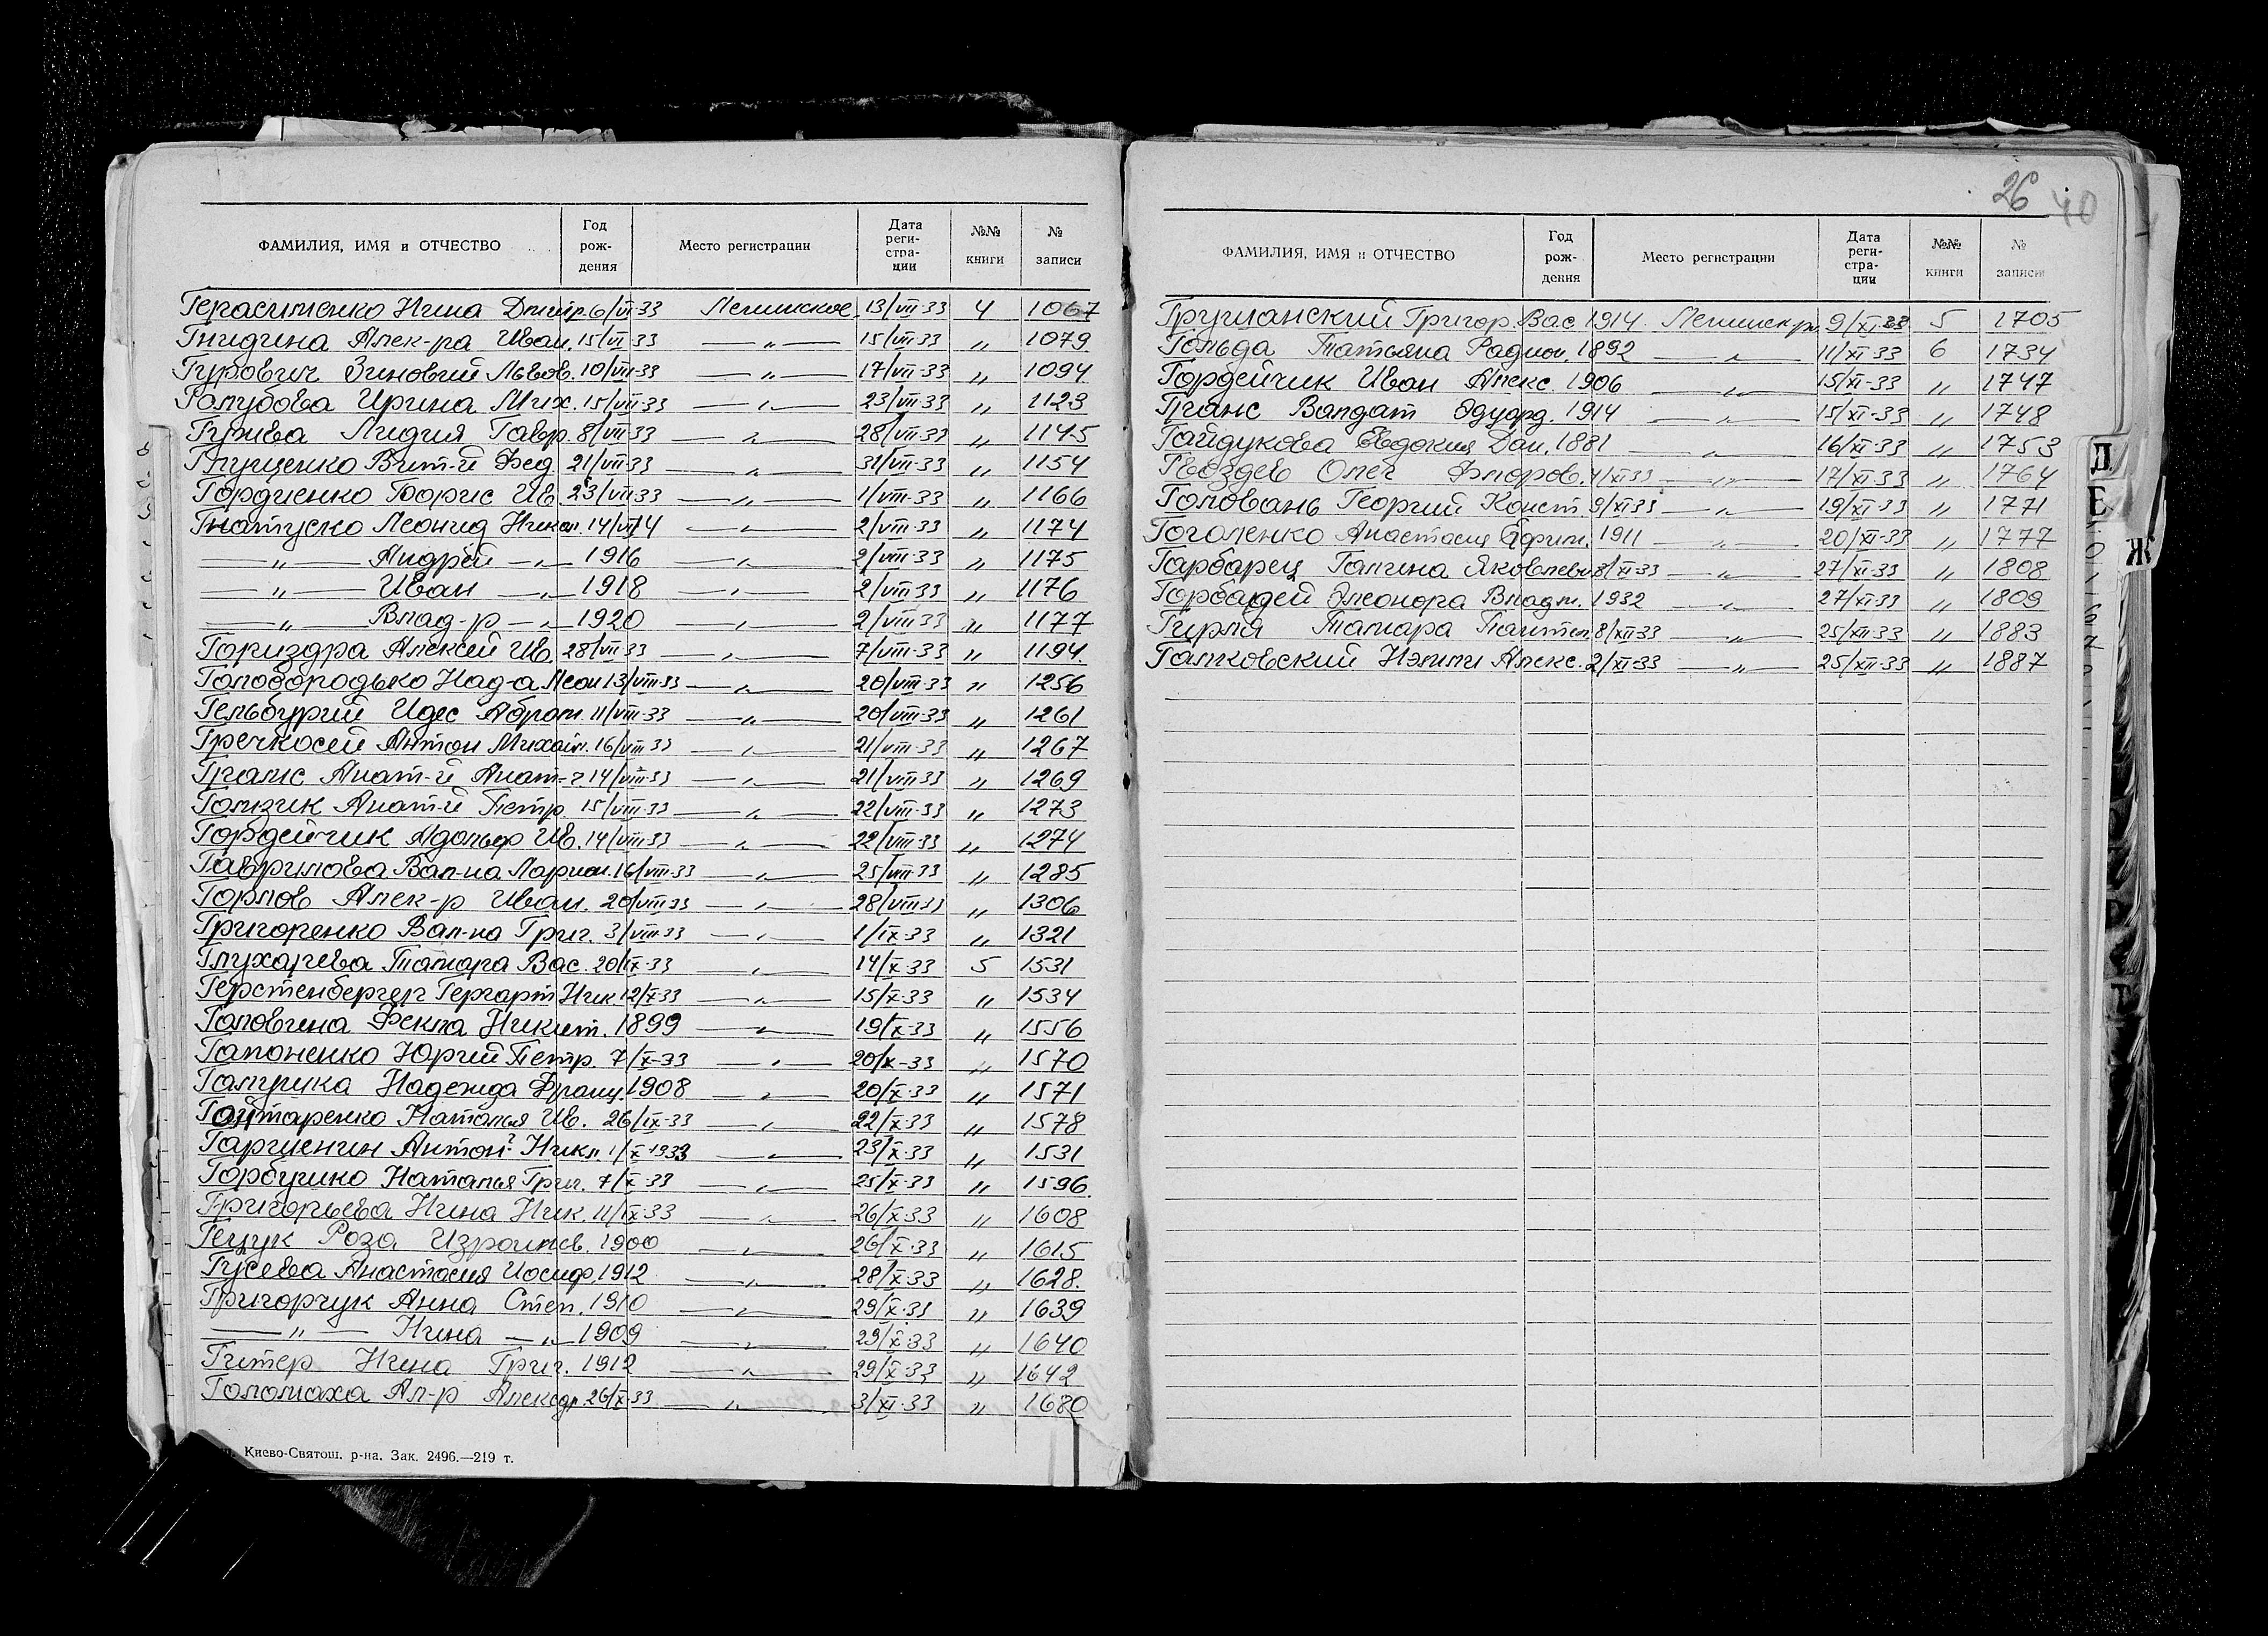 26 40
ФАМИЛИЯ, ИМЯ и ОТЧЕСТВО Год рождения Место регистрации Дата регистрации №№ книги № записи
Герасименко Нина Дмитр. 6/VI-33 Ленинское 13/VII-33 4 1067
Гнидина Алек-ра Иван. 15/VI-33 —"— 15/VII-33 " 1079
Гурович Зиновий Львов. 10/VII-33 —"— 17/VII-33 " 1094
Голубова Ирина Мих. 15/VII-33 —"— 23/VII-33 " 1123
Гужва Лидия Гавр. 8/VII-33 —"— 28/VII-33 " 1145
Глущенко Вит-й Фед. 21/VII-33 —"— 31/VII-33 " 1154
Гордиенко Борис Ив. 23/VII-33 —"— 1/VIII-33 " 1166
Гнатуско Леонид Никол. 14/VI 14 —"— 2/VIII-33 " 1174
—"— Андрей —"— 1916 —"— 2/VIII-33 " 1175
—"— Иван —"— 1918 —"— 2/VIII-33 " 1176
—"— Влад-р —"— 1920 —"— 2/VIII-33 " 1177
Гориздра Алексей Ив. 28/VII-33 —"— 7/VIII-33 " 1194
Голобородько Над-а Леон 13/VIII-33 —"— 20/VIII-33 " 1256
Гельбурий Идес Абрам. 11/VIII-33 —"— 20/VIII-33 " 1261
Гречкосей Антон Михайл. 16/VIII-33 —"— 21/VIII-33 " 1267
Гранс Анат-й Анат-. 14/VIII-33 —"— 21/VIII-33 " 1269
Голзик Анат-й Петр. 15/VIII-33 —"— 22/VIII-33 " 1273
Гордейчик Адольф Ив. 14/VIII-33 —"— 22/VIII-33 " 1274
Гаврилова Вал-на Ларион. 16/VIII-33 —"— 25/VIII-33 " 1285
Горлов Алек-р Иван. 20/VIII-33 —"— 28/VIII-33 " 1306
Григоренко Вал-на Григ. 3/VIII-33 —"— 1/IX-33 " 1321
Глухарева Тамара Вас. 20/IX-33 —"— 14/X-33 5 1531
Герстенбергер Гергарт Ник 12/X-33 —"— 15/X-33 " 1534
Головина Фекла Никит. 1899 —"— 19/X-33 " 1556
Гапоненко Юрий Петр. 7/X-33 —"— 20/X-33 " 1570
Галушка Надежда Франц. 1908 —"— 20/X-33 " 1571
Гонтаренко Наталья Ив. 26/IX-33 —"— 22/X-33 " 1578
Антон? Никл. 1/X-1933 —"— 23/X-33 " 1531
Горбушко Наталья Григ. 7/X-33 —"— 25/X-33 " 1596
Григорьева Нина Ник. 11/IX-33 —"— 26/X-33 " 1608
Гецук Роза Израилев. 1900 —"— 26/X-33 " 1615
Гусева Анастасия Иосиф. 1912 —"— 28/X-33 " 1628
Григорчук Анна Степ. 1910 —"— 29/X-33 " 1639
—"— Нина —"— 1909 —"— 29/X-33 " 1640
Гитер Нина Григ. 1912 —"— 29/X-33 " 1642
Голомаха Ал-р Александр 26/X-33 —"— 3/XI-33 " 1680
Киево-Святош. р-на. Зак. 2496.—219 т.
ФАМИЛИЯ, ИМЯ и ОТЧЕСТВО Год рождения Место регистрации Дата регистрации №№ книги № записи
Грушанский Григор. Вас. 1914 Ленинск. р. 9/XI-33 5 1705
Гольда Татьяна Радион. 1892 —"— 11/XI-33 6 1734
Гордейчик Иван Алекс. 1906 —"— 15/XI-33 " 1747
Гранс Валдат Эдуард. 1914 —"— 15/XI-33 " 1748
Гайдукова Евдокия Дан. 1881 —"— 16/XI-33 " 1753
Гвоздев Олег Флоров. 4/XI-33 —"— 17/XI-33 " 1764
Головань Георгий Конст. 9/XI-33 —"— 19/XI-33 " 1771
Гоголенко Анастасия Ефим. 1911 —"— 20/XI-33 " 1777
Гарбарец Галина Яковлевн 8/XI-33 —"— 27/XI-33 " 1808
Горбадей Элеонора Владим. 1932 —"— 27/XI-33 " 1809
Гирля Тамара Пантел 8/XII-33 —"— 25/XII-33 " 1883
Галковский Нэлли Алекс. 2/XI-33 —"— 25/XII-33 " 1887
Д
Е
Ж